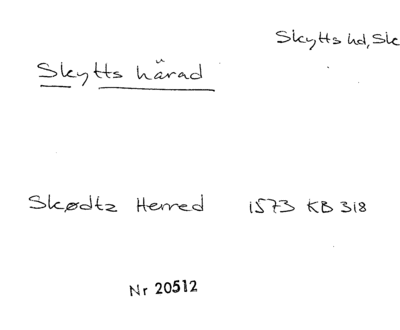 Skytts hd, Sk
Skytts härad
Skødtz Herred 1573 KB 318
Nr 20512